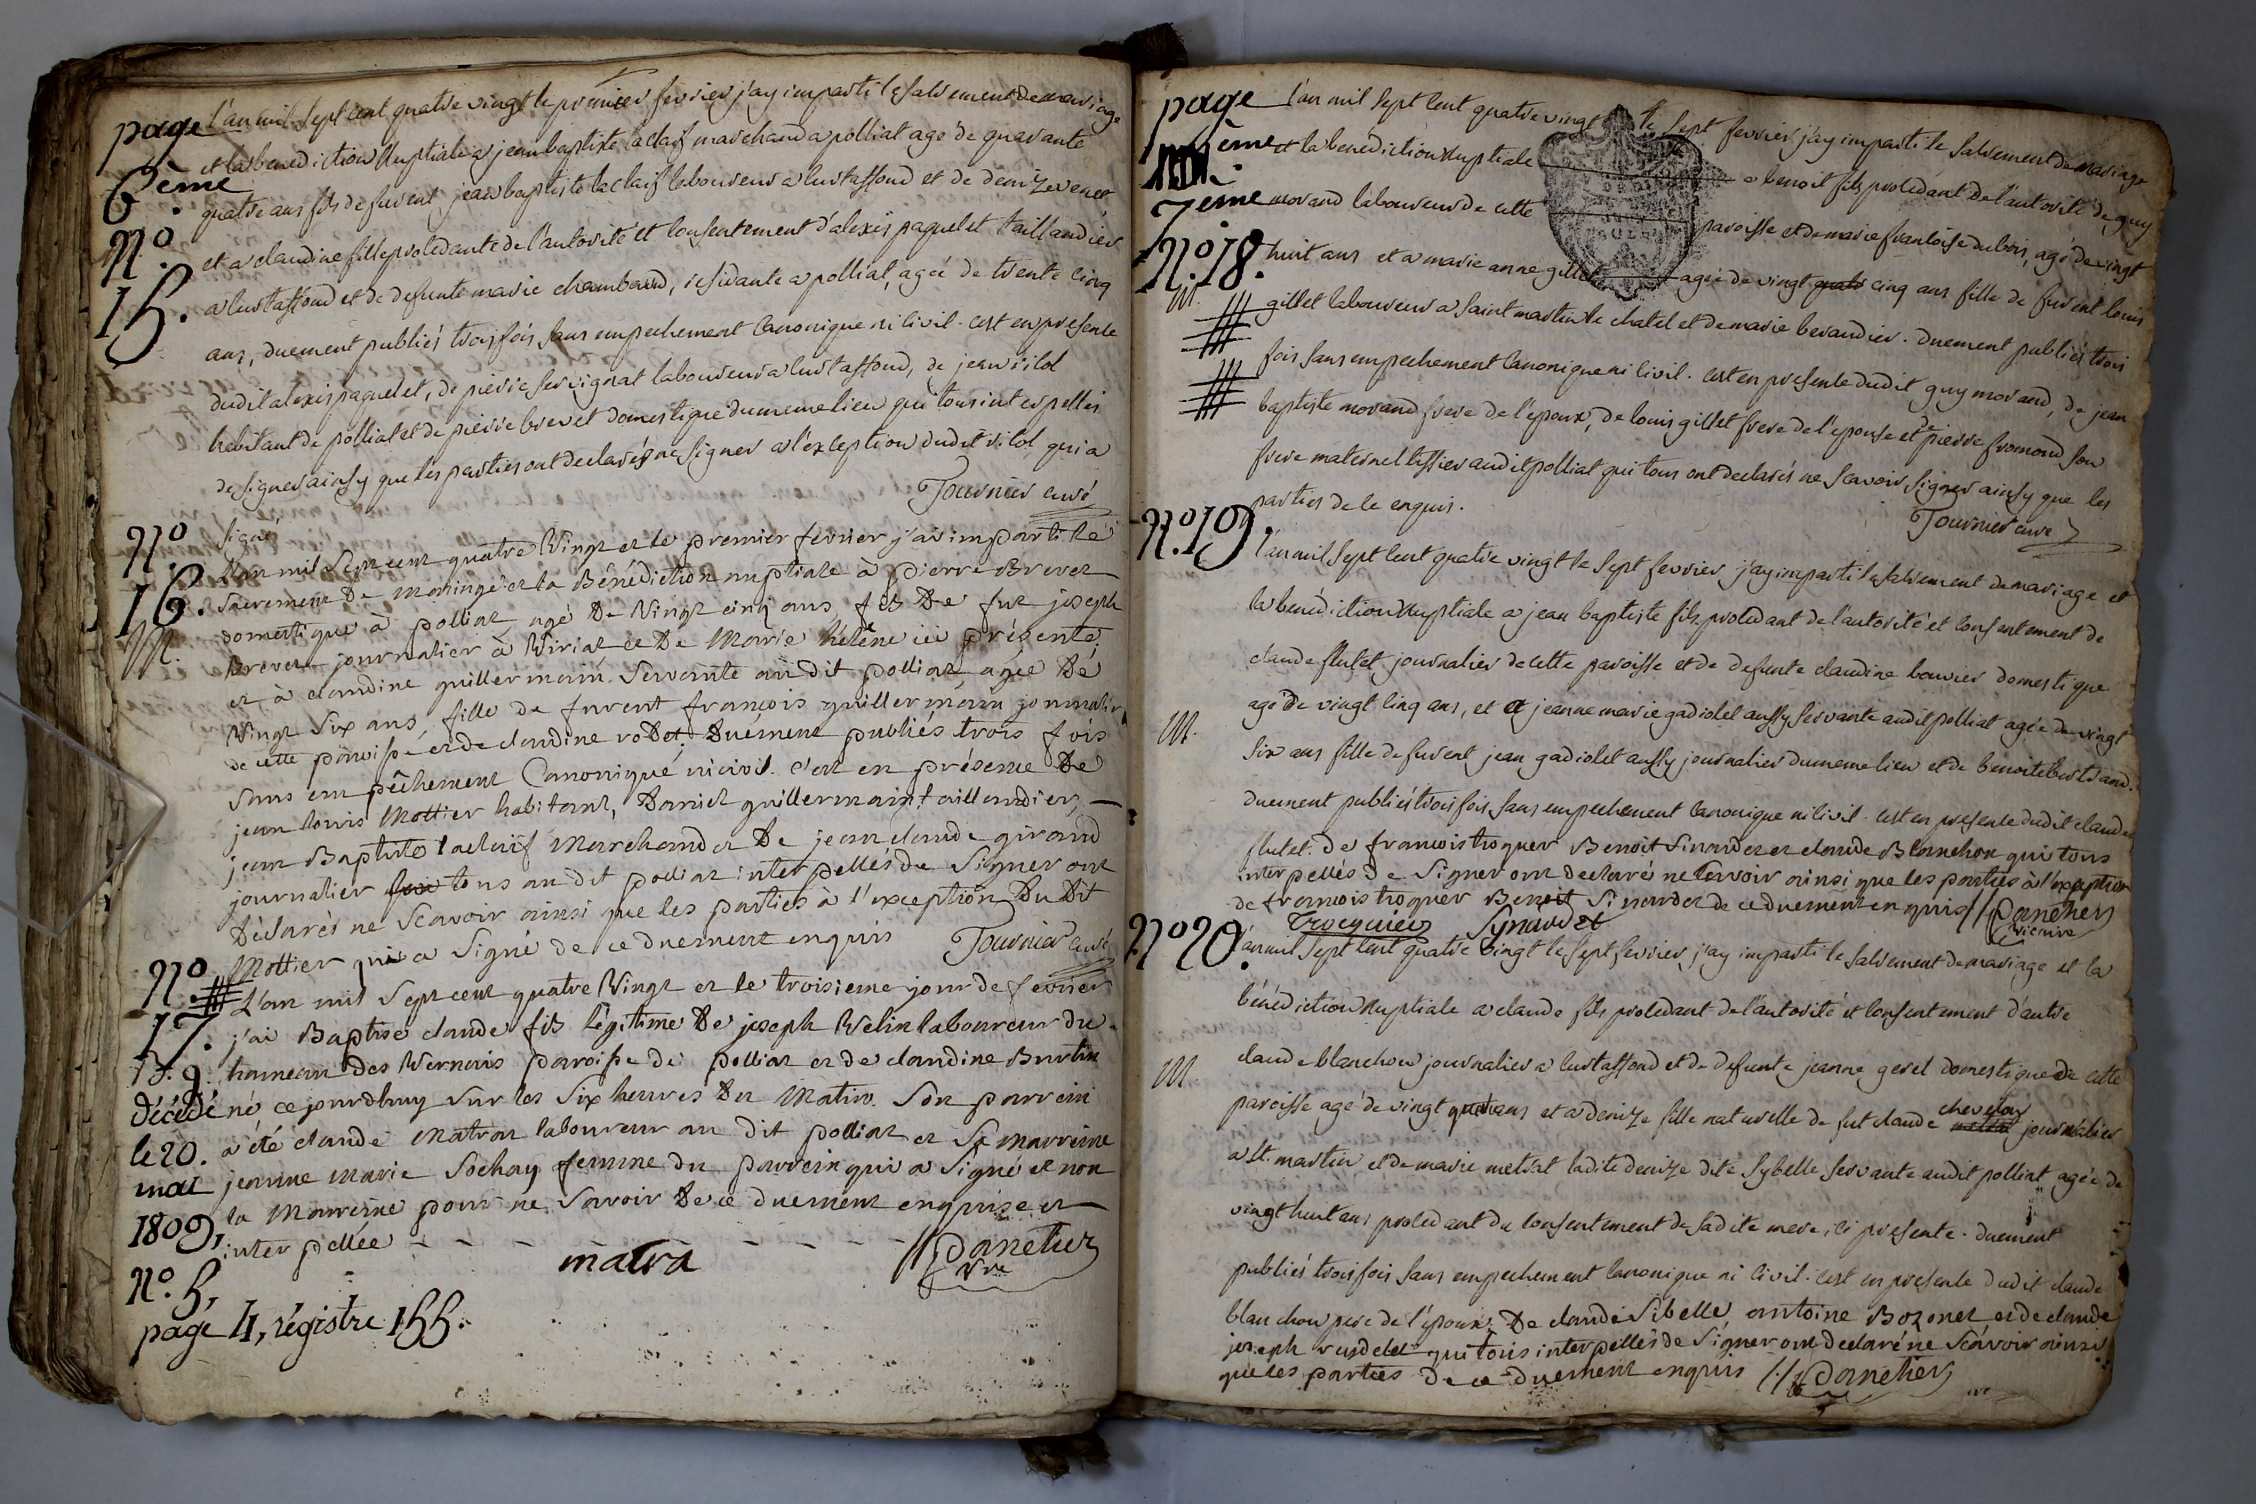 page
6ème
N.º
15.
L'an mil sept cent quatre vingt le premier fevrier j'ay imparti le sacrement de mariage
et la benediction nuptiale a jean baptiste laclaif marchand a polliat agé de quarante
quatre ans fils de furent jean baptiste laclaif laboureur a curtaffond et de denize
et a claudine fille procedante de l'autorité et consentement d'alexis paquelet taillandier
a curtaffond et de defunte marie chambard, residante a polliat, agée de trente cinq
ans, duement publiés trois fois sans empechement canonique ni civil. c'est en presence
dudit alexis paquelet, de pierre servignat laboureur a curtaffond, de jean
habitant de polliat et de pierre brevet domestique du meme lieu qui tous interpellés
de signer ainsy que les parties ont declarés ne signer a l'exception dudit qui a
signé
Tournier curé
N.º
16.
M.
L'an mil sept cent quatre vingt et le premier fevrier j'ai imparti le
sacrement de mariage et la Bénédiction nuptiale à pierre Brevet
domestique à polliat agé de vingt cinq ans fils de fut joseph
brevet journalier à viriat et de Marie hélène ici présente;
et à claudine guillermain servante au dit polliat agée de
vingt six ans fille de furent françois guillermain journalier
de cette paroisse et de claudine rodet. Duëment publiés trois fois
sans empêchement Canonique ni civil. c'est en présence de
jean louis Mottier habitant, Daniel guillermain taillandier,
jean Baptiste laclaif Marchand et De jean claude giraud
journalier tous au dit polliat interpellés de signer ont
déclarés ne scavoir ainsi que les parties à l'exception Du Dit
Mottier qui a signé de ce duement enquis
Tournier curé
N.º
17.
B. g.
décédé
le 20.
mai
1809,
N.º 5,
page 4, régistre 155.
L'an mil sept cent quatre vingt et le troisieme jour de fevrier
j'ai Baptisé claude fils légitime De joseph Velin laboureur du
hameau des Vernais paroisse de polliat et de claudine Burtin
né ce jourdhuy sur les six heures du Matin. Son parrein
a été claude Matrat laboureur au dit polliat et sa marreine
jeanne marie Sochay femme du parrein qui a signé et non
la Marreine pour ne savoir de ce duement enquise et
interpellée
matra
Panetier
vre
page
7.ème
N.º 18.
M.
L'an mil sept cent quatre vingt le sept fevrier j'ay imparti le sacrement de mariage
et la benediction nuptiale a benoit fils procedant de l'autorité de guy
morand laboureur de cette paroisse et de marie françoise dubois, agé de vingt
huit ans et a marie anne gillet agée de vingt quatr cinq ans fille de furent louis
gillet laboureur a saint martin le chatel et de marie beraudier. duement publiés trois
fois sans empechement canonique ni civil. c'est en presence dudit guy morand, de jean
baptiste morand frere de l'epoux, de louis gillet frere de l'epouse et pierre fromond son
frere maternel tissier audit polliat qui tous ont declarés ne scavoir signer ainsy que les
parties de ce enquis.
Tournier curé
N.º 19.
M.
L'an mil sept cent quatre vingt le sept fevrier j'ay imparti le sacrement de mariage et
la bénédiction nuptiale a jean baptiste fils procedant de l'autorité et consentement de
claude flutet journalier de cette paroisse et de defunte claudine bouvier domestique
agé de vingt cinq ans, et a jeanne marie gadiolet aussy servante audit polliat agée de vingt
six ans fille de furent jean gadiolet aussy journalier du meme lieu et de benoite bertrand.
duement publiés trois fois sans empechement canonique ni civil. c'est en presence dudit claude
flutet. De francois troquier Benoit Sinardet et claude Blanchon qui tous
interpellés De Signer ont declarés ne savoir ainsi que les parties à l'exception
de francois troquier Benoit Sinardet de ce duement enquis
Panetier
vicaire
Trocquier Synardet
N.º 20.
M
L'an mil sept cent quatre vingt le sept fevrier j'ay imparti le sacrement de mariage et la
bénédiction nuptiale a claude fils procedant de l'autorité et consentement d'autre
claude blanchon journalier a curtaffond et de defunte jeanne domestique de cette
paroisse agé de vingt ans et a denize fille naturelle de fut claude journalier
a st. martin et de marie metrat ladite denize dite sybelle servante audit polliat agée de
vingt huit ans procedant du consentement de sadite mere, ici presente. duement
publiés trois fois sans empechement canonique ni civil. c'est en presence dudit claude
blanchon pere de l'époux. De claude Sibelle antoine Bozonet et de claude
joseph qui tous interpellés de signer ont declaré ne scavoir ainsi
que les parties de ce duement enquis
Panetier